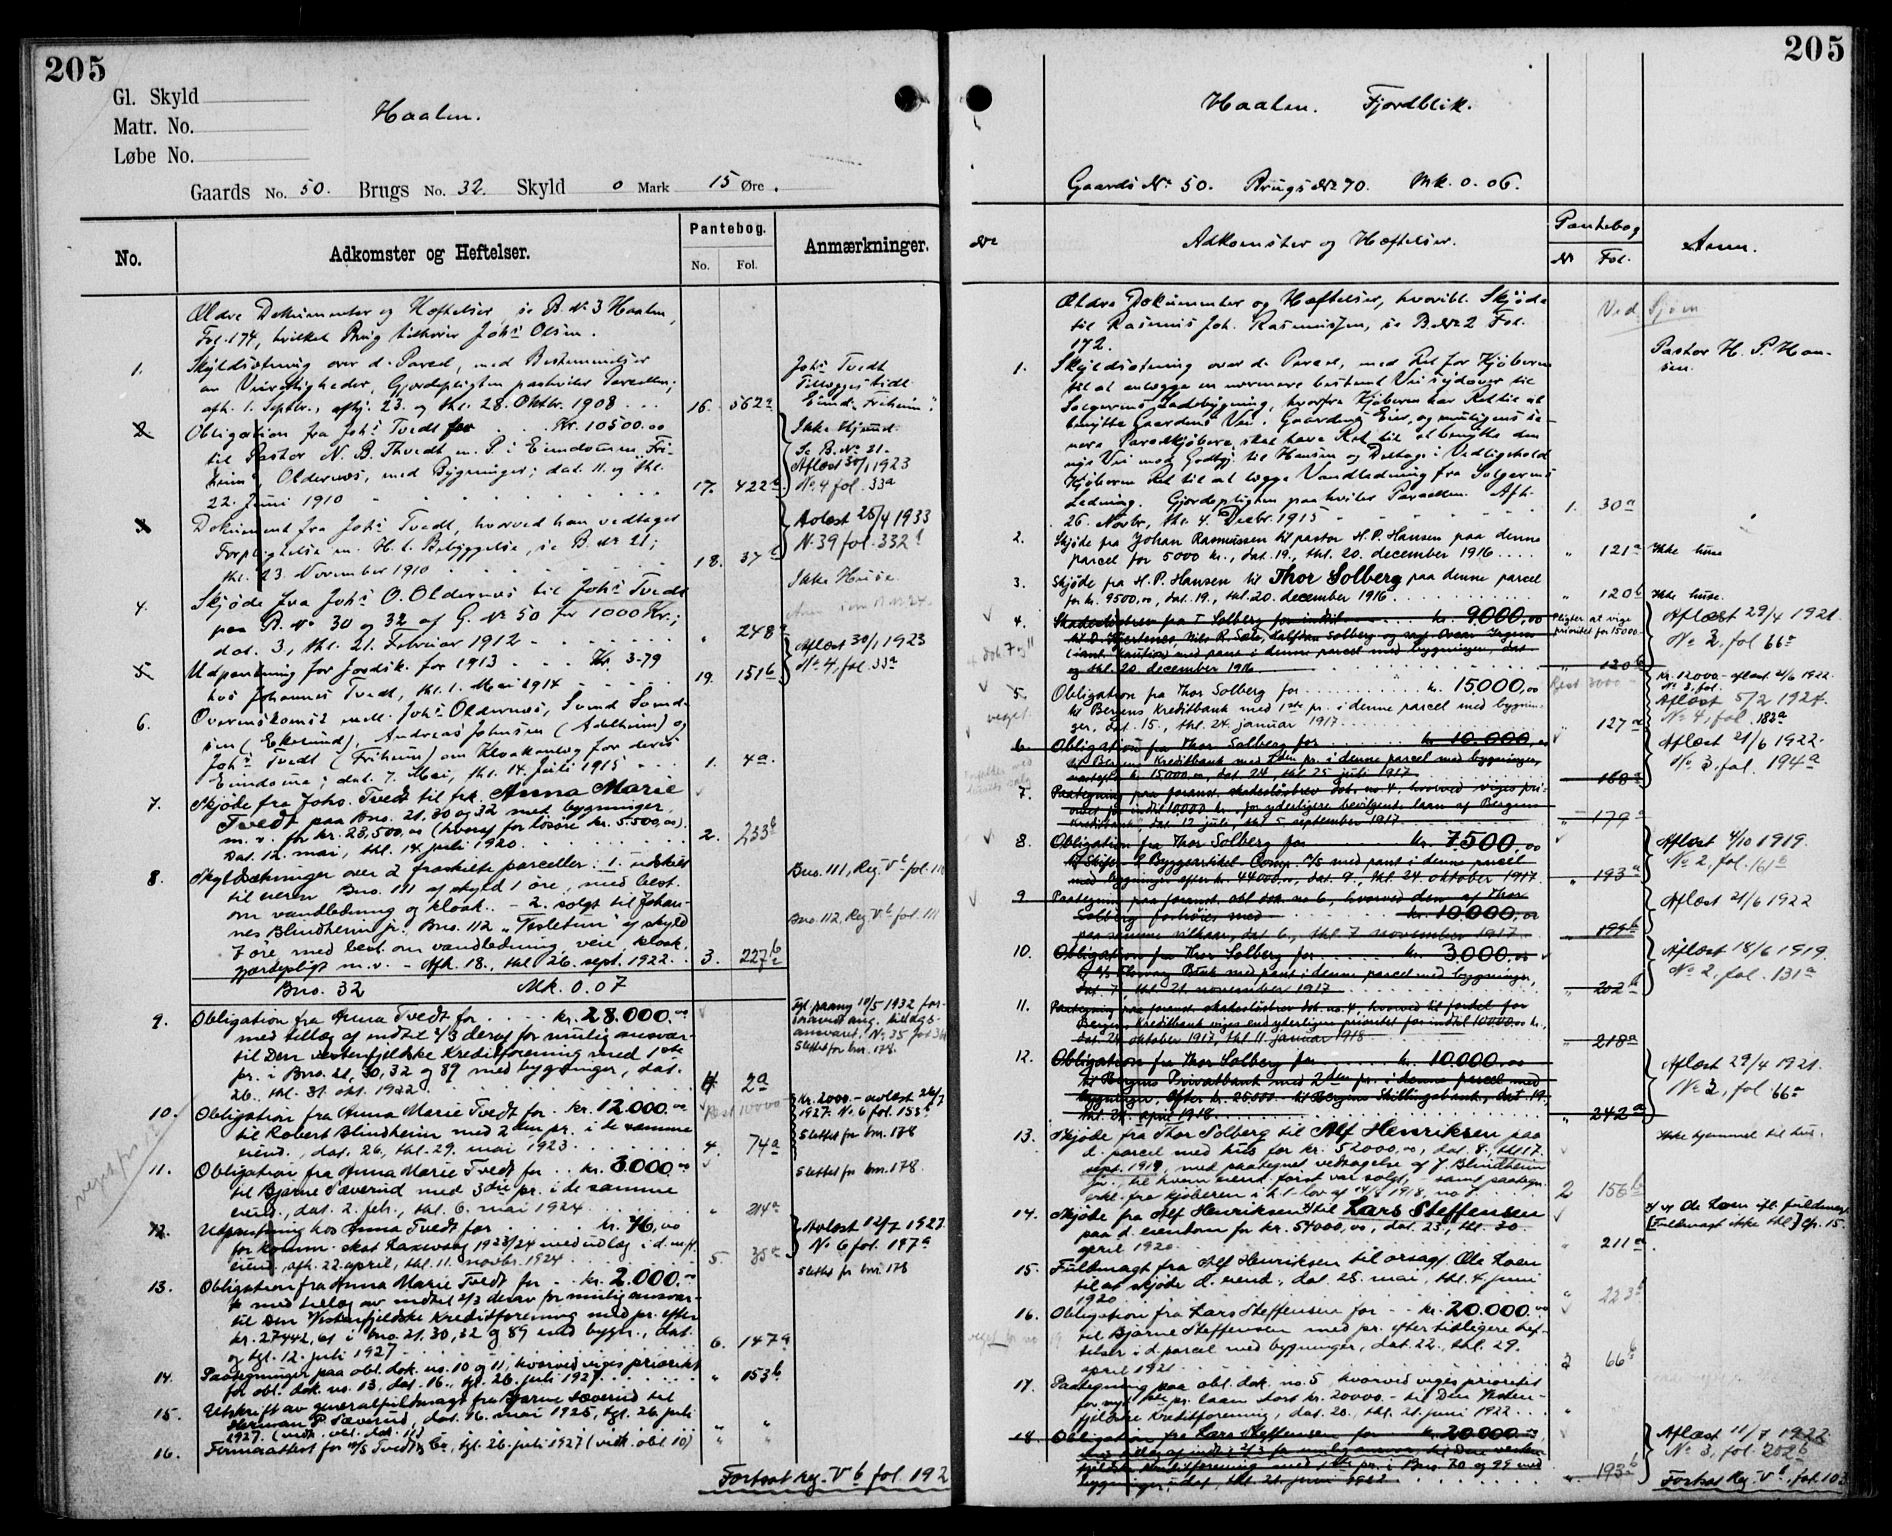 205
Gl. Skyld
Matr. No.
Løbe No.
Haalen.
Gaards No. 50. Brugs No. 32. Skyld 0 Mark 15 Øre.
No. Adkomster og Heftelser. Pantebog. No. Fol. Anmærkninger.
Ældre Dokumenter og Hæftelser, se B. No 3 Haalen,
Fol. 174, hvilket Brug tilhører Johs Olsen.
1. Skyldsætning over d. Parcel, med Bestemmelser
om Veirettigheder, Gjerdepligten paahviler Parcellen;
afh. 1. Septbr., afhj. 23. og thl. 28. Oktbr. 1908 . . . 16. 562a
Johs Tvedt
Tillægges tidl.
Eiend. "Friheim".
2. Obligation fra Johs Tvedt for . . Kr. 10500.00
til Pastor N. B. Thvedt m. P. i Eiendommen "Fri-
heim" Oldernes, med Bygninger; dat. 11. og thl.
22. Juni 1910 17. 422b
Ikke Hjemmel.
Se B. No 21.
Aflæst 30/1 1923
No 4 fol. 33a
3. Dokument fra Johs Tvedt, hvorved han vedtager
Forpligtelse m. H. t. Bebyggelse, se B. No 21;
thl. 23. November 1910 18. 37b
Avlæst 25/4 1933
N. 39 fol. 332b
Ikke Huse.
4. Skjøde fra Johs O. Oldernes til Johs Tvedt
paa B. No 30 og 32 af G. No 50 for 1000 Kr.;
dat. 3, thl. 21. Februar 1912 " 248a
5. Udpantning for Jordsk. for 1913 . . . Kr. 3-79
hos Johannes Tvedt, thl. 1. Mai 1914 19. 151b
Aflæst 30/1 1923
No 4, fol. 33a
6. Overenskomst mell. Johs Oldernes, Svend Svend-
sen (Ekelund), Andreas Johnsen (Adelheim) og
Johs Tvedt (Friheim) om Kloakanlæg for deres
Eiendomme; dat. 7. Mai, thl. 14. Juli 1915 1. 4a.
7. Skjøde fra Johs. Tvedt til frk. Anna Marie
Tvedt paa Bno. 21, 30 og 32 med bygninger
m. v. for kr. 23,500,00 (hvoraf for løsøre kr. 5.500,00)
Dat. 12. mai, thl. 14. juli 1920 2. 233b
8. Skyldsætninger over 2 fraskilte parceller: 1. udskilt
til veien Bno. 111 af skyld 1 øre, med best.
om vandledning og kloak. – 2. solgt til Johan-
nes Blindheim jr. Bno. 112 af skyld
7 øre, med best. om vandledning, veie, kloak,
gjerdepligt m. v. – Afh. 18., thl. 26. sept. 1922. 3. 227b
Bno. 111, Reg. Vb fol. 110
Bno. 112, Reg. Vb fol. 111
Bno. 32 Mk. 0.07
9. Obligation fra Anna Tvedt for . . . kr. 28.000.00
med tillæg af indtil 2/3 deraf for mulig ansvar-
til Den vestenfjeldske Kreditforening med 1ste
pr. i Bno. 21, 30, 32 og 89 med bygninger, dat.
26., thl. 31. okt. 1922 4 2a
Slettet for bnr. 178.
10. Obligation fra Anna Marie Tvedt for . kr. 12.000.00
til Robert Blindheim med 2den pr. i de samme
eiend., dat. 26., thl. 29. mai 1923 4. 74a
kr. 2000.– avlæst 26/7
1927. No 6 fol. 153b
Slettet for bnr. 178
11. Obligation fra Anna Marie Tvedt for . . kr. 3.000.00
til Bjarne Sæverud med 3die pr. i de samme
eiend., dat. 2. febr., thl. 6. mai 1924 " 214a
Slettet for bnr. 178.
12. Utpantning hos Anna Tvedt for . . . kr. 76,00
for komm. skat Laxevaag 1923/24 med utlæg i d. m. fl.
eiend., afh. 22. april, thl. 11. novbr. 1924 5. 35a
Avlæst 12/7 1927
No 6 fol. 147a
13. Obligation fra Anna Marie Tvedt for . . kr. 2.000.00
med tillæg av indtil 2/3 derav for mulig ansvar-
til Den Vestenfjeldske Kreditforening med pr. efter
kr. 27442,61 i bno. 21, 30, 32 og 89 med bygn., dat.
og tgl. 12. juli 1927 6. 147a
Slettet for bnr. 178
14. Paategninger paa obl. dok. no. 10 og 11, hvorved viges prioritet
for obl. dok. no. 13, dat. 16., tgl. 26. juli 1927 " 153b
15. Utskrift av generalfuldmagt fra Bjarne Sæverud til
Herman P. Sæverud, dat. 16. mai 1925, tgl. 26. juli
1927. (vedk. obl. dok. 11) " "
16. Firmaattest for A/S Tvedt & Co., tgl. 26. juli 1927 (vedk. obl. 10) " "
Fortsat reg. V b fol. 192
205
Haalen. Fjordblik.
Gaards No 50. Brugs No 70. Mk. 0.06.
No Adkomster og Hæftelser. Pantebog No Fol. Anm.
Ældre Dokumenter og Hæftelser, hvoribl. Skjøde
til Rasmus Joh. Rasmussen, se B. No 2 Fol.
172.
Ved Sjøen
1. Skyldsætning over d. Parcel, med Ret for Kjøberen
til at anlægge en nærmere bestemt Vei sydover til
Sælgerens Ladebygning, hvorfra Kjøberen har Ret til at
benytte Gaardens Vei. Gaardens Eier, og muligens se-
nere Parcelkjøbere skal have Ret til at benytte den
nye Vei mod Godtgj. til Hansen og Deltage i Vedligehold.
Kjøberen Ret til at lægge Vandledning fra Sælgerens
Ledning. Gjerdepligten paahviler Parcellen. Afh.
26. Novbr., thl. 4. Decbr. 1915 1. 30a
Pastor H. P. Han-
sen.
2. Skjøde fra Johan Rasmussen til pastor H. P. Hansen paa denne
parcel for 5000 kr., dat. 19., thl. 20. december 1916 . . . . " 121a Ikke huse
3. Skjøde fra H. P. Hansen til Thor Solberg paa denne parcel
for kr. 9500,00, dat. 19., thl. 20. december 1916 " 120b Ikke huse.
4. Skadesløsbrev fra T. Solberg for indtil . . . kr. 9000,00
og thl. 20. december 1916 " 120b
Pligter at vige
prioritet for 15000.-
Aflæst 29/4 1921.
No 2, fol. 66a
5. Obligation fra Thor Solberg for . . . kr. 15000,00
til Bergens Kreditbank med 1ste pr. i denne parcel med bygnin-
ger, dat. 15., thl. 24. januar 1917 " 127a
Rest 3000 –
kr. 12000.- aflæst 21/6 1922.
No 3, fol.
Aflæst 5/2 1924.
No 4, fol. 182a
6. Obligation fra Thor Solberg for . . . kr. 10.000,00
til Bergens Kreditbank med 2den pr. i denne parcel med bygninger,
næstefter kr. 15000,00, dat. 24., thl. 25 juli 1917 " 168a
Aflæst 21/6 1922.
No 3, fol. 194a
7. Paategning paa foranst. skadesløsbrev dok. no. 4, hvorved viges pri-
oritet for indtil 10000 kr. for yderligere bevilgende laan af Bergens
Kreditbank, dat. 12 juli, thl. 5 september 1917 " 179a
8. Obligation fra Thor Solberg for . . . kr. 7500,00
med bygninger efter kr. 44000,00, dat. 9., thl. 24. oktober 1917 " 193a
Aflæst 4/10 1919.
No 2, fol. 161a
9 Paategning paa foranst. obl. dok. no. 6, hvorved den af Thor
Solberg forhøies med . . . kr. 10.000,00
paa samme vilkaar, dat. 6., thl. 7 november 1917 " 199b
Aflæst 21/6 1922
10. Obligation fra Thor Solberg for . . . kr. 3000,00
med pant i denne parcel med bygninger,
dat. 7., thl. 21. november 1917 " 202b
Aflæst 18/6 1919.
No 2, fol. 131a
11. Paategning paa foranst. skadesløsbrev dok. no. 4, hvorved til fordel for
Bergens Kreditbank viges end yderligere prioritet for indtil 10000,00 kr.,
dat. 24 oktober 1917, thl. 11. januar 1918 " 218a
12. Obligation fra Thor Solberg for . . . kr. 10.000,00
til Bergens Privatbank med 2den pr. i denne parcel med
bygninger, efter kr. 25000.- til Bergens Skillingsbank, dat. 19.,
thl. 24. april 1918 " 242a
Aflæst 29/4 1921.
No 2, fol. 66a
13. Skjøde fra Thor Solberg til Alf Henriksen paa
d. parcel med hus for kr. 52000,00, dat. 8., thl. 17.
sept. 1919, med paategnet vedtagelse af J. Blindheim
jr. til hvem eiend. først var solgt, – samt paategn.
erkl. fra kjøberen i h. t. lov af 14/8 1918, no 8. 2 156b
Ikke hjemmel til hus.
14. Skjøde fra Alf Henriksen til Lars Steffensen
paa d. eiendom for kr. 54000,00, dat. 23., thl. 30.
april 1920 " 211a
v/ Ole Loen ifl. fuldmagt
[Fuldmagt ikke thl.] Cfr. 15.
15. Fuldmagt fra Alf Henriksen til orsagf. Ole Loen
til at skjøde d. eiend., dat. 28. mai, thl. 4. juni
1920 " 223b
16. Obligation fra Lars Steffensen for . . kr. 20.000.00
til Bjarne Steffensen med pr. efter tidligere hef-
telser i d. parcel med bygninger, dat. 22., thl. 29.
april 1921 3 66b
17. Paategning paa obl. dok. no. 5 hvorved viges prioritet
for nyt 1ste pr. laan stort kr. 20000.- til Den Vesten-
fjeldske Kreditforening, dat. 20., thl. 21. juni 1922 . . . "
18. Obligation fra Lars Steffensen for kr. 20000.00
med tillæg af indtil 2/3 for mulig ansvar, til Den vesten-
fjeldske Kreditforening med 1ste pr. i Bno. 70 og 99 med
bygninger, dat., thl. 21. juni 1922 " 193b
Aflæst 11/7 1922
No 3, fol. 202b
Fortsat Reg. Vb, fol. 103